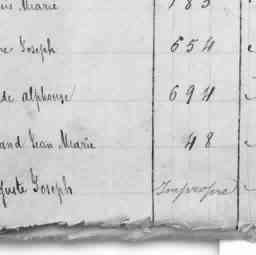 Marie 783
Joseph 654
de alphonse 694
and Jean Marie 48
guste Joseph Impropre